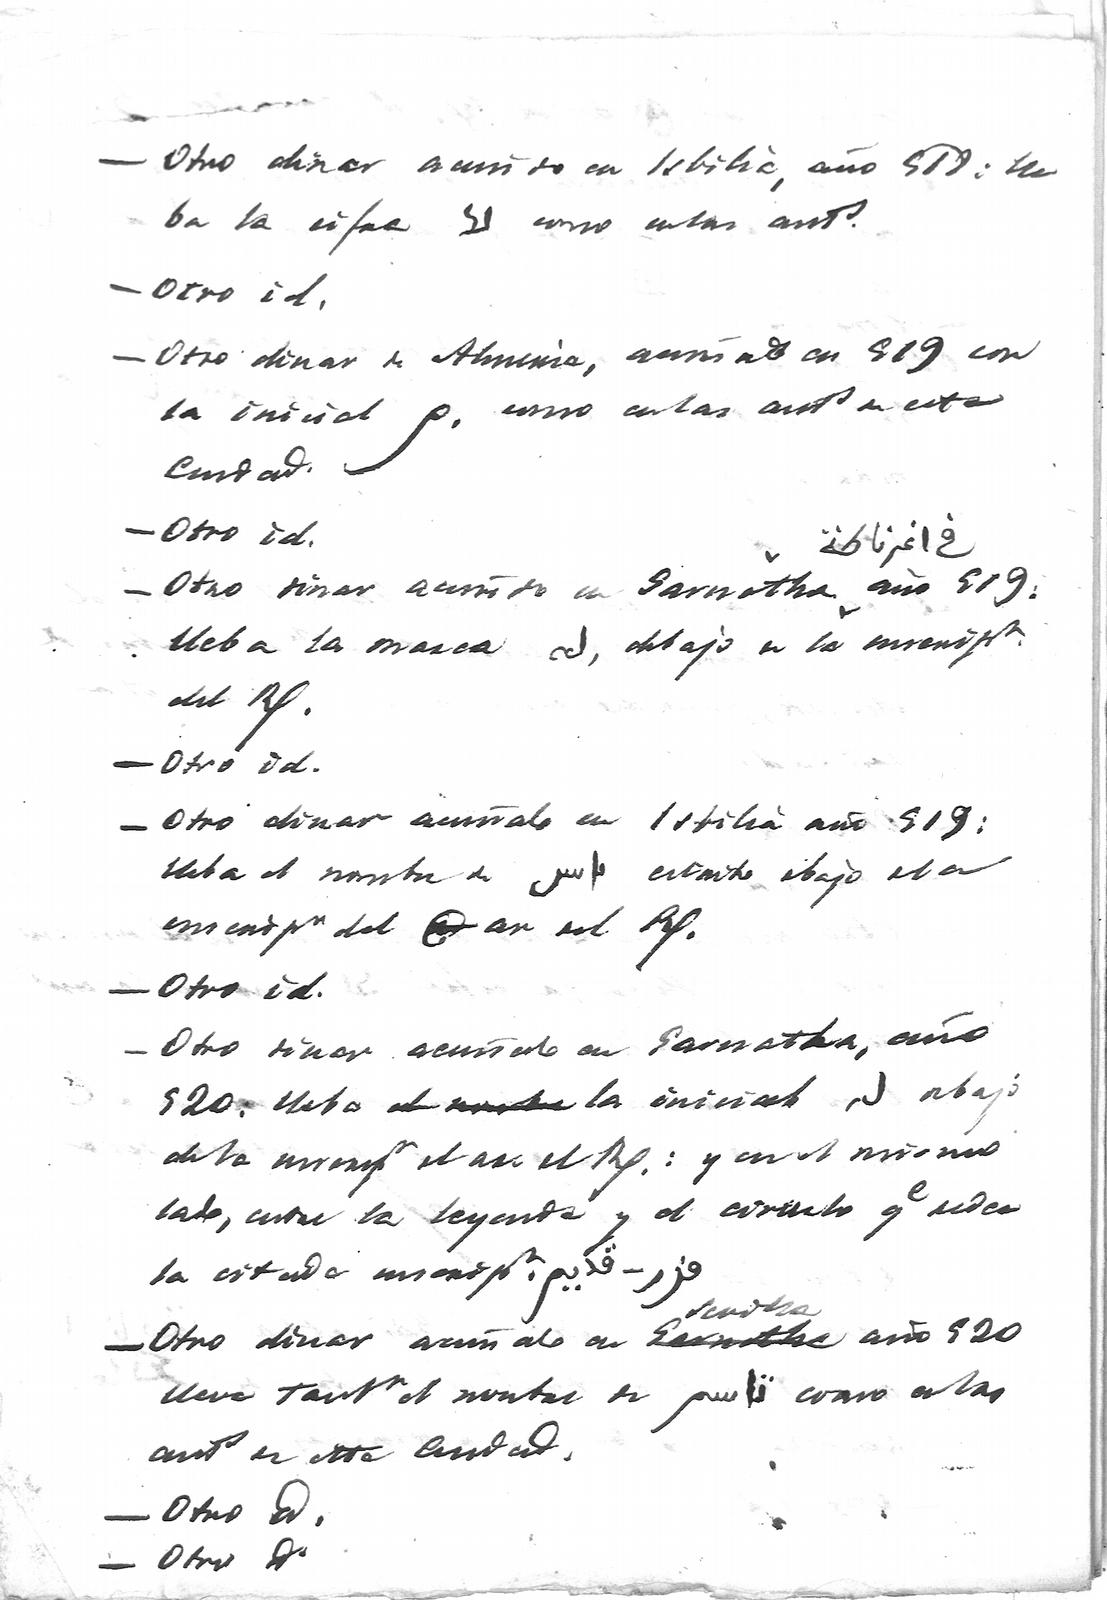 — Otro dinar acuñado en Isbilia, año 518: lle
ba la cifra como en las antˢ.
— Otro id.
— Otro dinar de Almeria, acuñado en 519 con
la inicial م. como en las antˢ de esta
Ciudad.
— Otro id.
في اغرناطة
— Otro dinar acuñado en Garnatha año 519:
lleba la marca لـ, debajo de la inscripⁿ.
del Rƒ.
— Otro id.
— Otro dinar acuñado en Isbilia año 519:
lleba el nombre de escrito abajo de la
inscripⁿ del ar del Rƒ.
— Otro id.
— Otro dinar acuñado en Garnatha, año
520: lleba el nombre la inicial لـ debajo
de la inscripⁿ del are del Rƒ.: y en el mismo
lado, entre la leyenda y el circulo qᵉ rodea
la citada inscripⁿ: فزر – قديم
Sevilla
— Otro dinar acuñado en Garnatha año 520
lleva tambⁿ el nombre de قاسم como en las
antˢ de esta Ciudad.
— Otro id.
— Otro id.